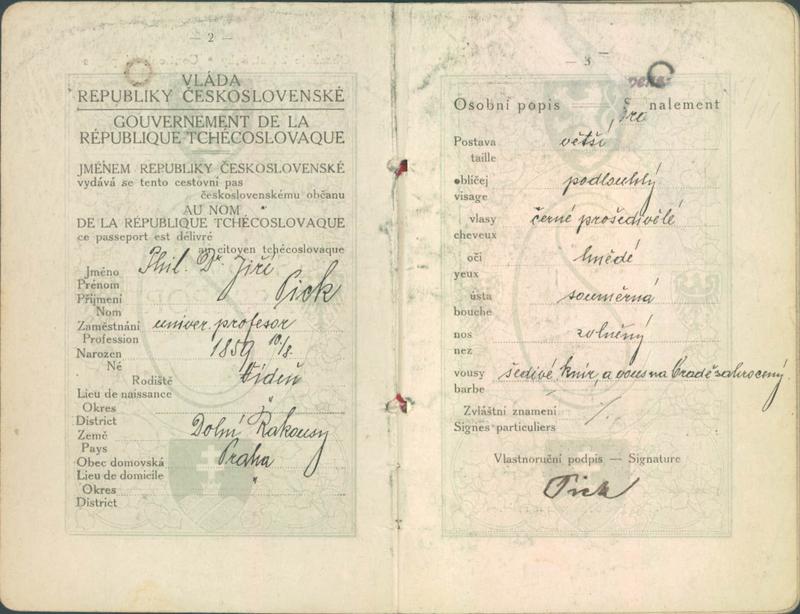 — 2 —
VLÁDA
REPUBLIKY ČESKOSLOVENSKÉ
GOUVERNEMENT DE LA
RÉPUBLIQUE TCHÉCOSLOVAQUE
JMÉNEM REPUBLIKY ČESKOSLOVENSKÉ
vydává se tento cestovní pas
československému občanu
AU NOM
DE LA RÉPUBLIQUE TCHÉCOSLOVAQUE
ce passeport est délivré
au citoyen tchécoslovaque
Jméno Phil. Dr. Jiří
Prénom
Příjmení Pick
Nom
Zaměstnání univer. profesor
Profession
Narozen 1859 10/8.
Né
Rodiště Vídeň
Lieu de naissance
Okres "
District
Země Dolní Rakousy
Pays
Obec domovská Praha
Lieu de domicile
Okres "
District
— 3 —
Osobní popis
nalement
Postava větší
taille
obličej podlouhlý
visage
vlasy černé prošedivělé
cheveux
oči hnědé
yeux
ústa souměrná
bouche
nos
nez
vousy šedivé, knír, a vous na bradě zahrocený.
barbe
Zvláštní znamení
Signes particuliers
Vlastnoruční podpis — Signature
Pick